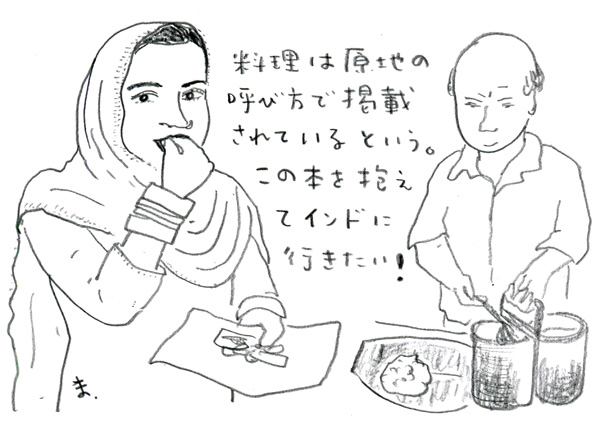 料理は原地の
呼び方で掲載
されているという。
この本を抱え
てインドに
行きたい!
ま.